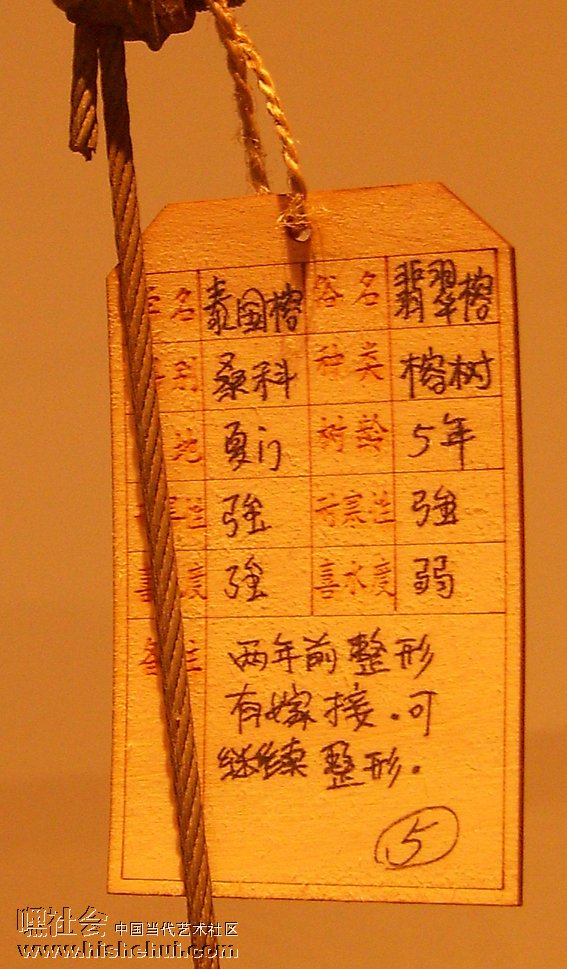 学名 泰国榕 俗名 翡翠榕
科别 桑科 种类 榕树
地 夏门 树龄 5年
旱性 強 耐寒性 強
喜 度 強 喜水度 弱
备注 两年前整形
有嫁接.可
继续整形.
5
嘿社会 中国当代艺术社区
www.hishehui.com